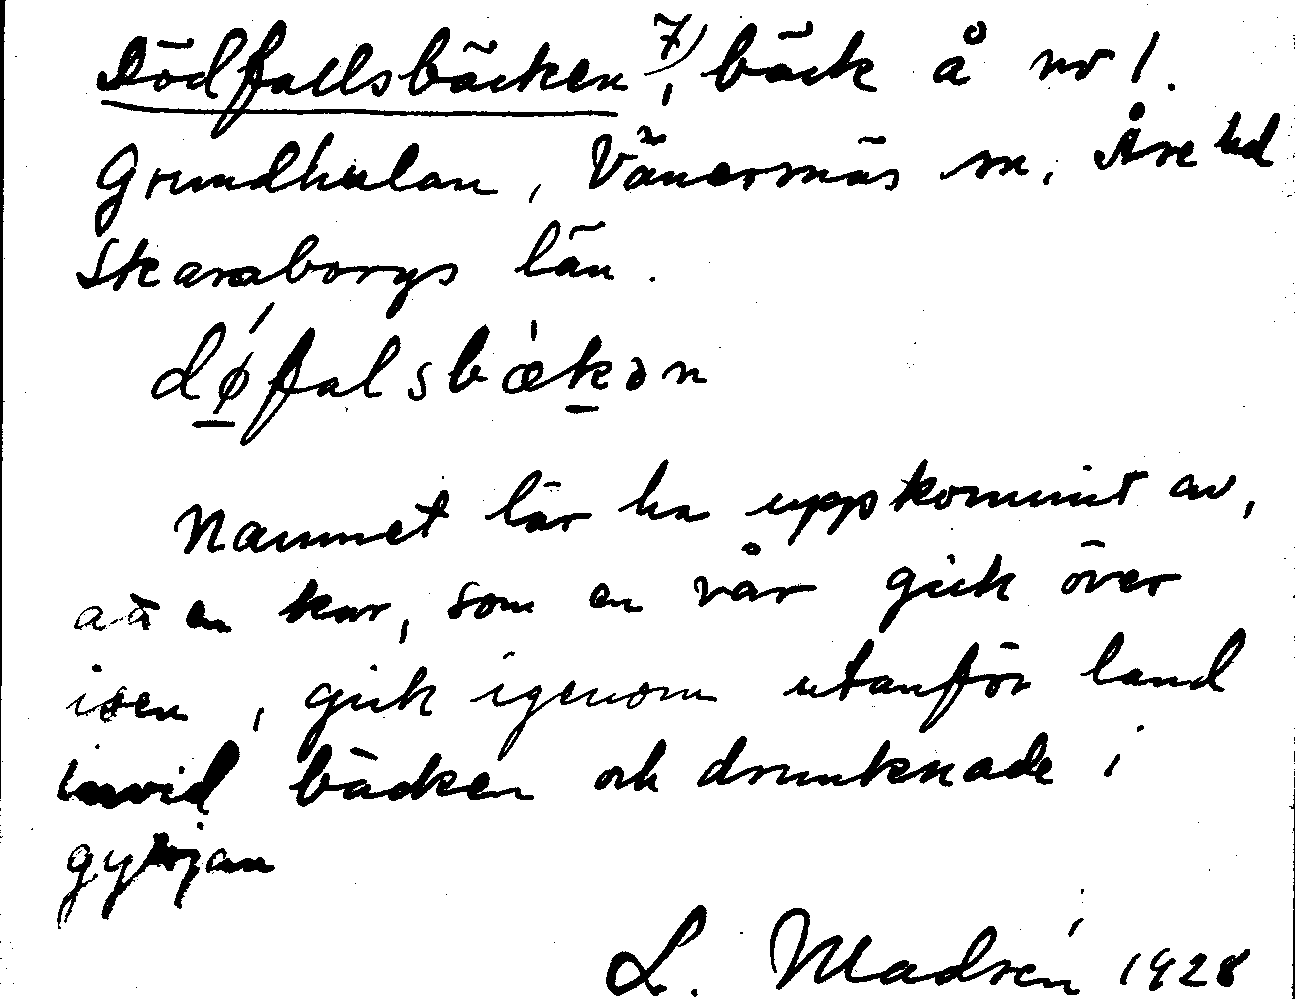 Dödfallsbäcken 7), bäck å nr 1.
Grundhulan, Vänersnäs sn, Åse hd
Skaraborgs län.
dǿ̱falsbæ̍ḵən
Namnet lär ha uppkommit av,
att en kar, som en vår gick över
isen, gick igenom utanför land
invid bäcken och drunknade i
gyttjan
L. Madsén 1928